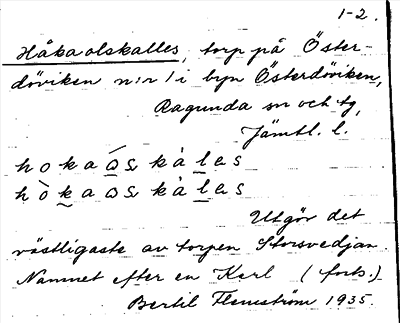 1-2.
Håkaolskalles, torp på Öster-
döviken n:r 1 i byn Österdöviken,
Ragunda sn och tg,
Jämtl. l.
Utgör det
västligaste av torpen Storsvedjan.
Namnet efter en Karl (forts.)
Bertil Flemström 1935.